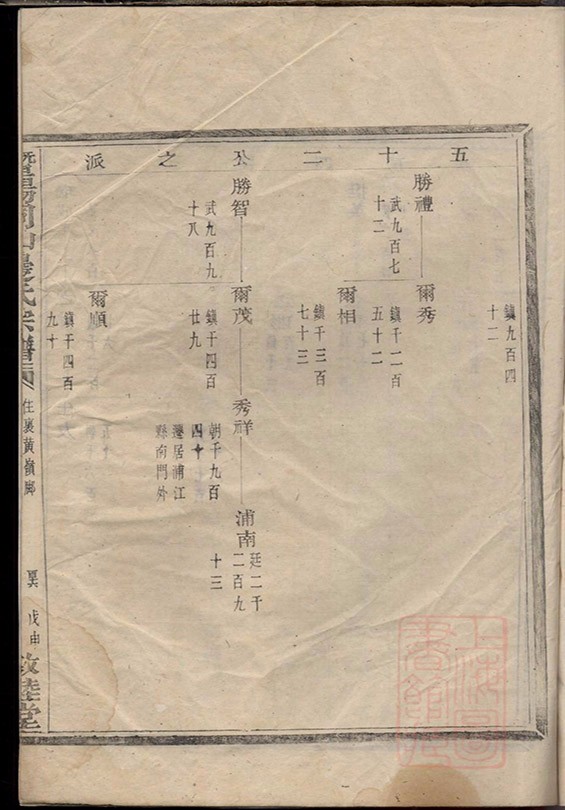 五十二公之派
鎮九百四
十二
勝禮
武九百七
十二
爾秀
鎮千二百
五十二
爾相
鎮千三百
七十三
勝智
武九百九
十八
爾茂
鎮千四百
廿九
秀祥
朝千九百
四十
遷居浦江
縣南門外
浦南
廷二千
二百九
十三
爾順
鎮千四百
九十
氏宗譜
住裏黃嶺腳
敦睦堂